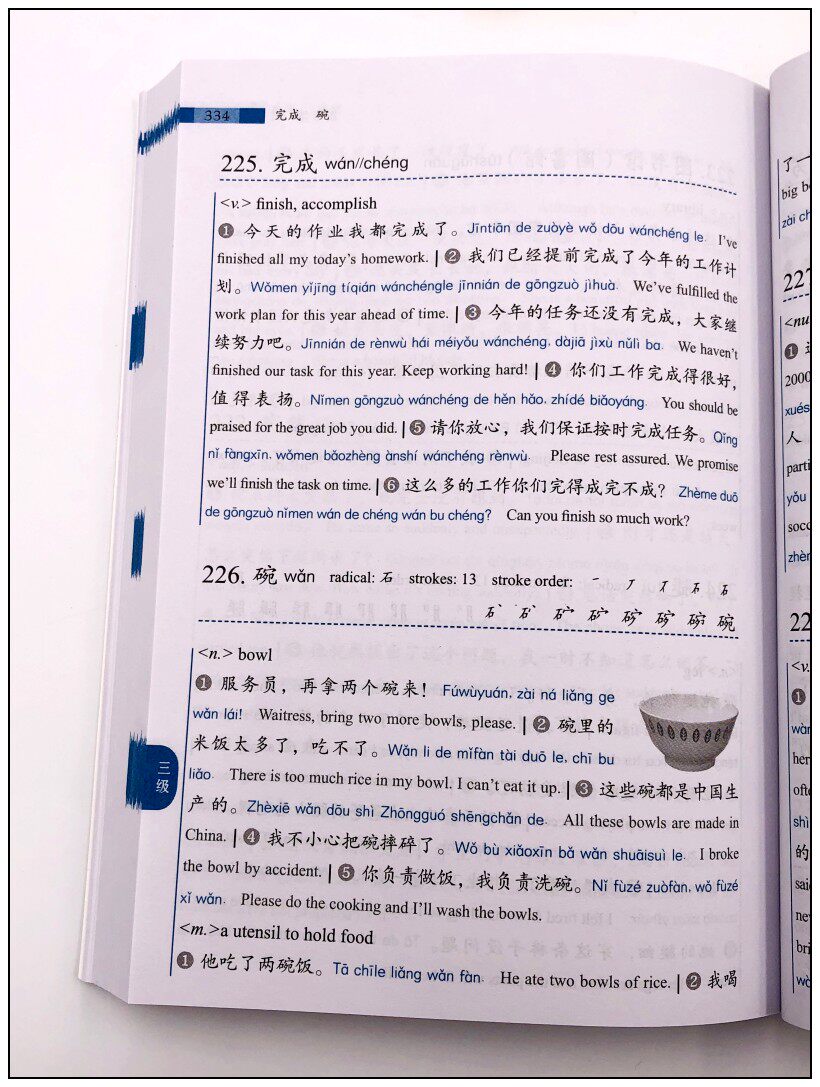 334 完成 碗
225. 完成 wán//chéng
<v.> finish, accomplish
❶ 今天的作业我都完成了。Jīntiān de zuòyè wǒ dōu wánchéng le. I've
finished all my today's homework. | ❷ 我们已经提前完成了今年的工作计
划。Wǒmen yǐjīng tíqián wánchéngle jīnnián de gōngzuò jìhuà. We've fulfilled the
work plan for this year ahead of time. | ❸ 今年的任务还没有完成，大家继
续努力吧。Jīnnián de rènwù hái méiyǒu wánchéng, dàjiā jìxù nǔlì ba. We haven't
finished our task for this year. Keep working hard! | ❹ 你们工作完成得很好，
值得表扬。Nǐmen gōngzuò wánchéng de hěn hǎo, zhídé biǎoyáng. You should be
praised for the great job you did. | ❺ 请你放心，我们保证按时完成任务。Qǐng
nǐ fàngxīn, wǒmen bǎozhèng ànshí wánchéng rènwù. Please rest assured. We promise
we'll finish the task on time. | ❻ 这么多的工作你们完得成完不成？ Zhème duō
de gōngzuò nǐmen wán de chéng wán bu chéng? Can you finish so much work?
226. 碗 wǎn radical: 石 strokes: 13 stroke order: 一 丆 石 石
碗
<n.> bowl
❶ 服务员，再拿两个碗来！ Fúwùyuán, zài ná liǎng ge
wǎn lái! Waitress, bring two more bowls, please. | ❷ 碗里的
米饭太多了，吃不了。Wǎn li de mǐfàn tài duō le, chī bu
liǎo. There is too much rice in my bowl. I can't eat it up. | ❸ 这些碗都是中国生
产的。Zhèxiē wǎn dōu shì Zhōngguó shēngchǎn de. All these bowls are made in
China. | ❹ 我不小心把碗摔碎了。Wǒ bù xiǎoxīn bǎ wǎn shuāisuì le. I broke
the bowl by accident. | ❺ 你负责做饭，我负责洗碗。Nǐ fùzé zuòfàn, wǒ fùzé
xǐ wǎn. Please do the cooking and I'll wash the bowls.
<m.>a utensil to hold food
❶ 他吃了两碗饭。Tā chīle liǎng wǎn fàn. He ate two bowls of rice. | ❷ 我喝
三级
了一
big b
zài ch
227
<nu
❶
2000
xués
人
parti
yǒu
socc
zhèn
22
<v.
❶
wàn
her
ofte
shì
的
said
nev
bri
wò